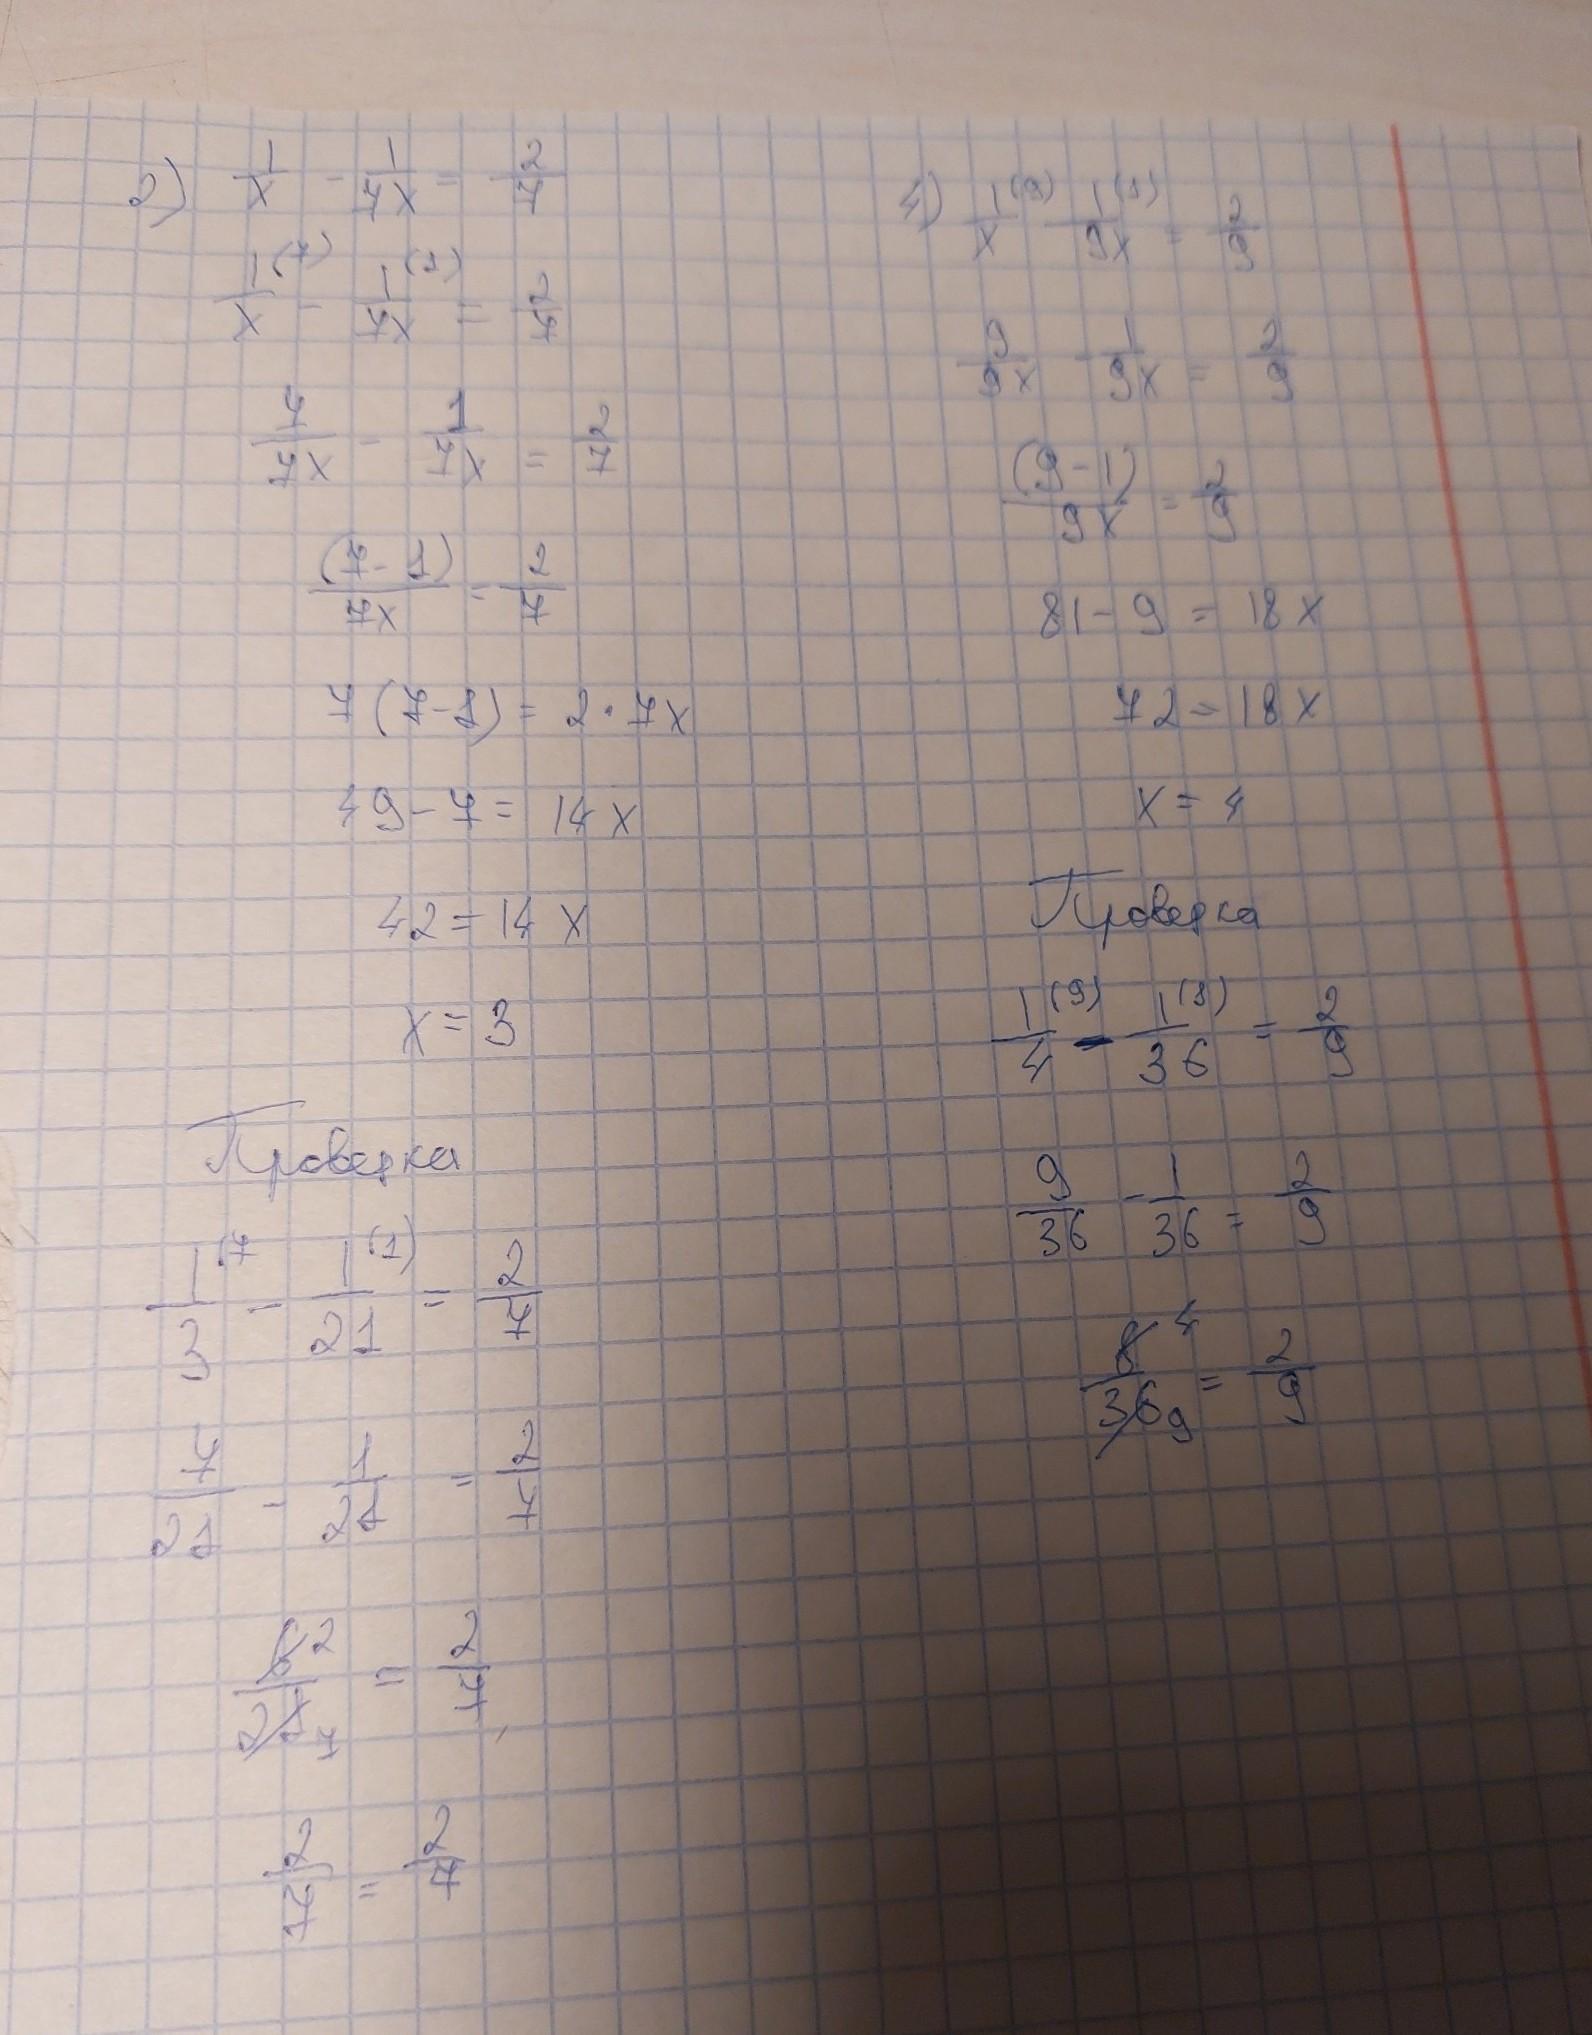 2) 1/x - 1/7x = 2/7
1/x (7) - 1/7x (1) = 2/7
7/7x - 1/7x = 2/7
(7-1)/7x = 2/7
7(7-1) = 2·7x
49-7 = 14x
42 = 14x
x = 3
Проверка
1/3 (7 - 1/21 (1) = 2/7
7/21 - 1/21 = 2/7
6/21 2 7 = 2/7
2/7 = 2/7
4) 1/x (9) 1/9x (1) = 2/9
9/9x - 1/9x = 2/9
(9-1)/9x = 2/9
81-9 = 18x
72 = 18x
x = 4
Проверка
1/4 (9) - 1/36 (1) = 2/9
9/36 - 1/36 = 2/9
8/36 4 9 = 2/9